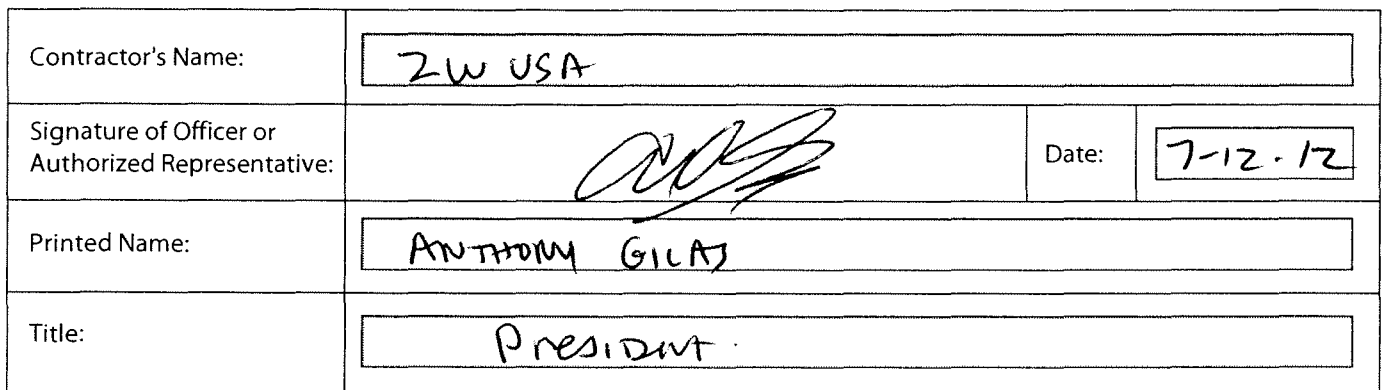 Contractor's Name: ZW USA
Signature of Officer or
Authorized Representative:
Date: 7-12-12
Printed Name: ANTHONY GILAS
Title: President